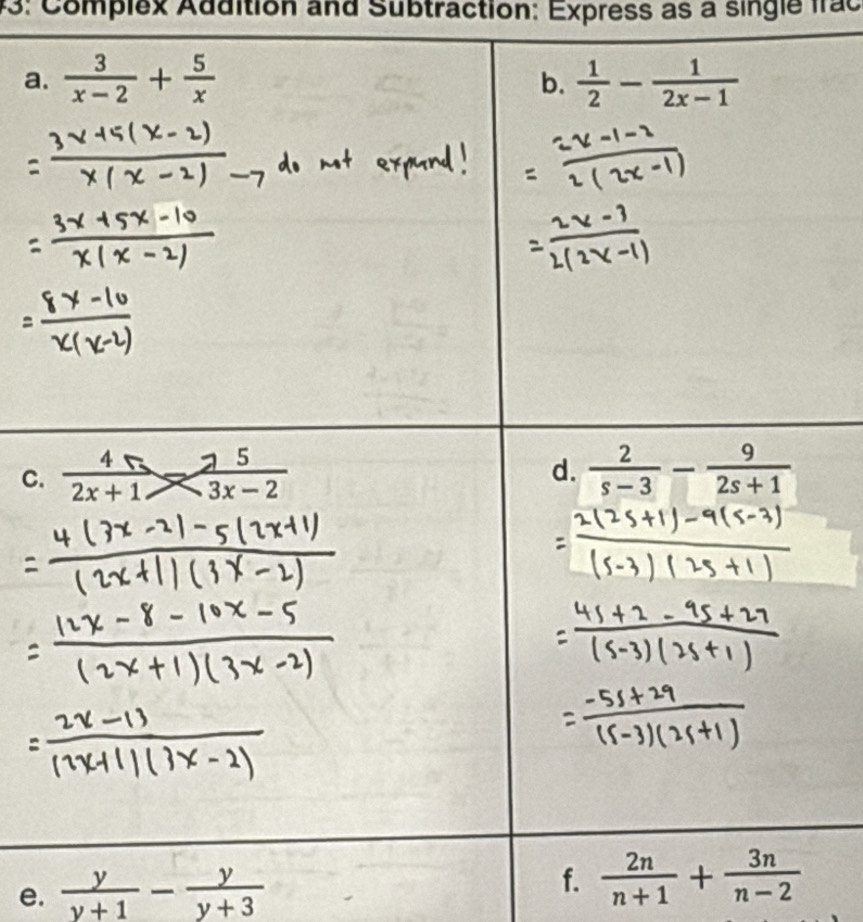 #3: Complex Addition and Subtraction: Express as a single frac
a. 3/(x − 2) + 5/x
= (3x+5(x-2))/(x(x-2)) → do not expand!
= (3x+5x-10)/(x(x-2))
= (8x-10)/(x(x-2))
b. 1/2 − 1/(2x − 1)
= (2x-1-2)/(2(2x-1))
= (2x-3)/(2(2x-1))
c. 4/(2x + 1) − 5/(3x − 2)
= (4(3x-2)-5(2x+1))/((2x+1)(3x-2))
= (12x-8-10x-5)/((2x+1)(3x-2))
= (2x-13)/((2x+1)(3x-2))
d. 2/(s − 3) − 9/(2s + 1)
= (2(2s+1)-9(s-3))/((s-3)(2s+1))
= (4s+2-9s+27)/((s-3)(2s+1))
= (-5s+29)/((s-3)(2s+1))
e. y/(y + 1) − y/(y + 3)
f. 2n/(n + 1) + 3n/(n − 2)